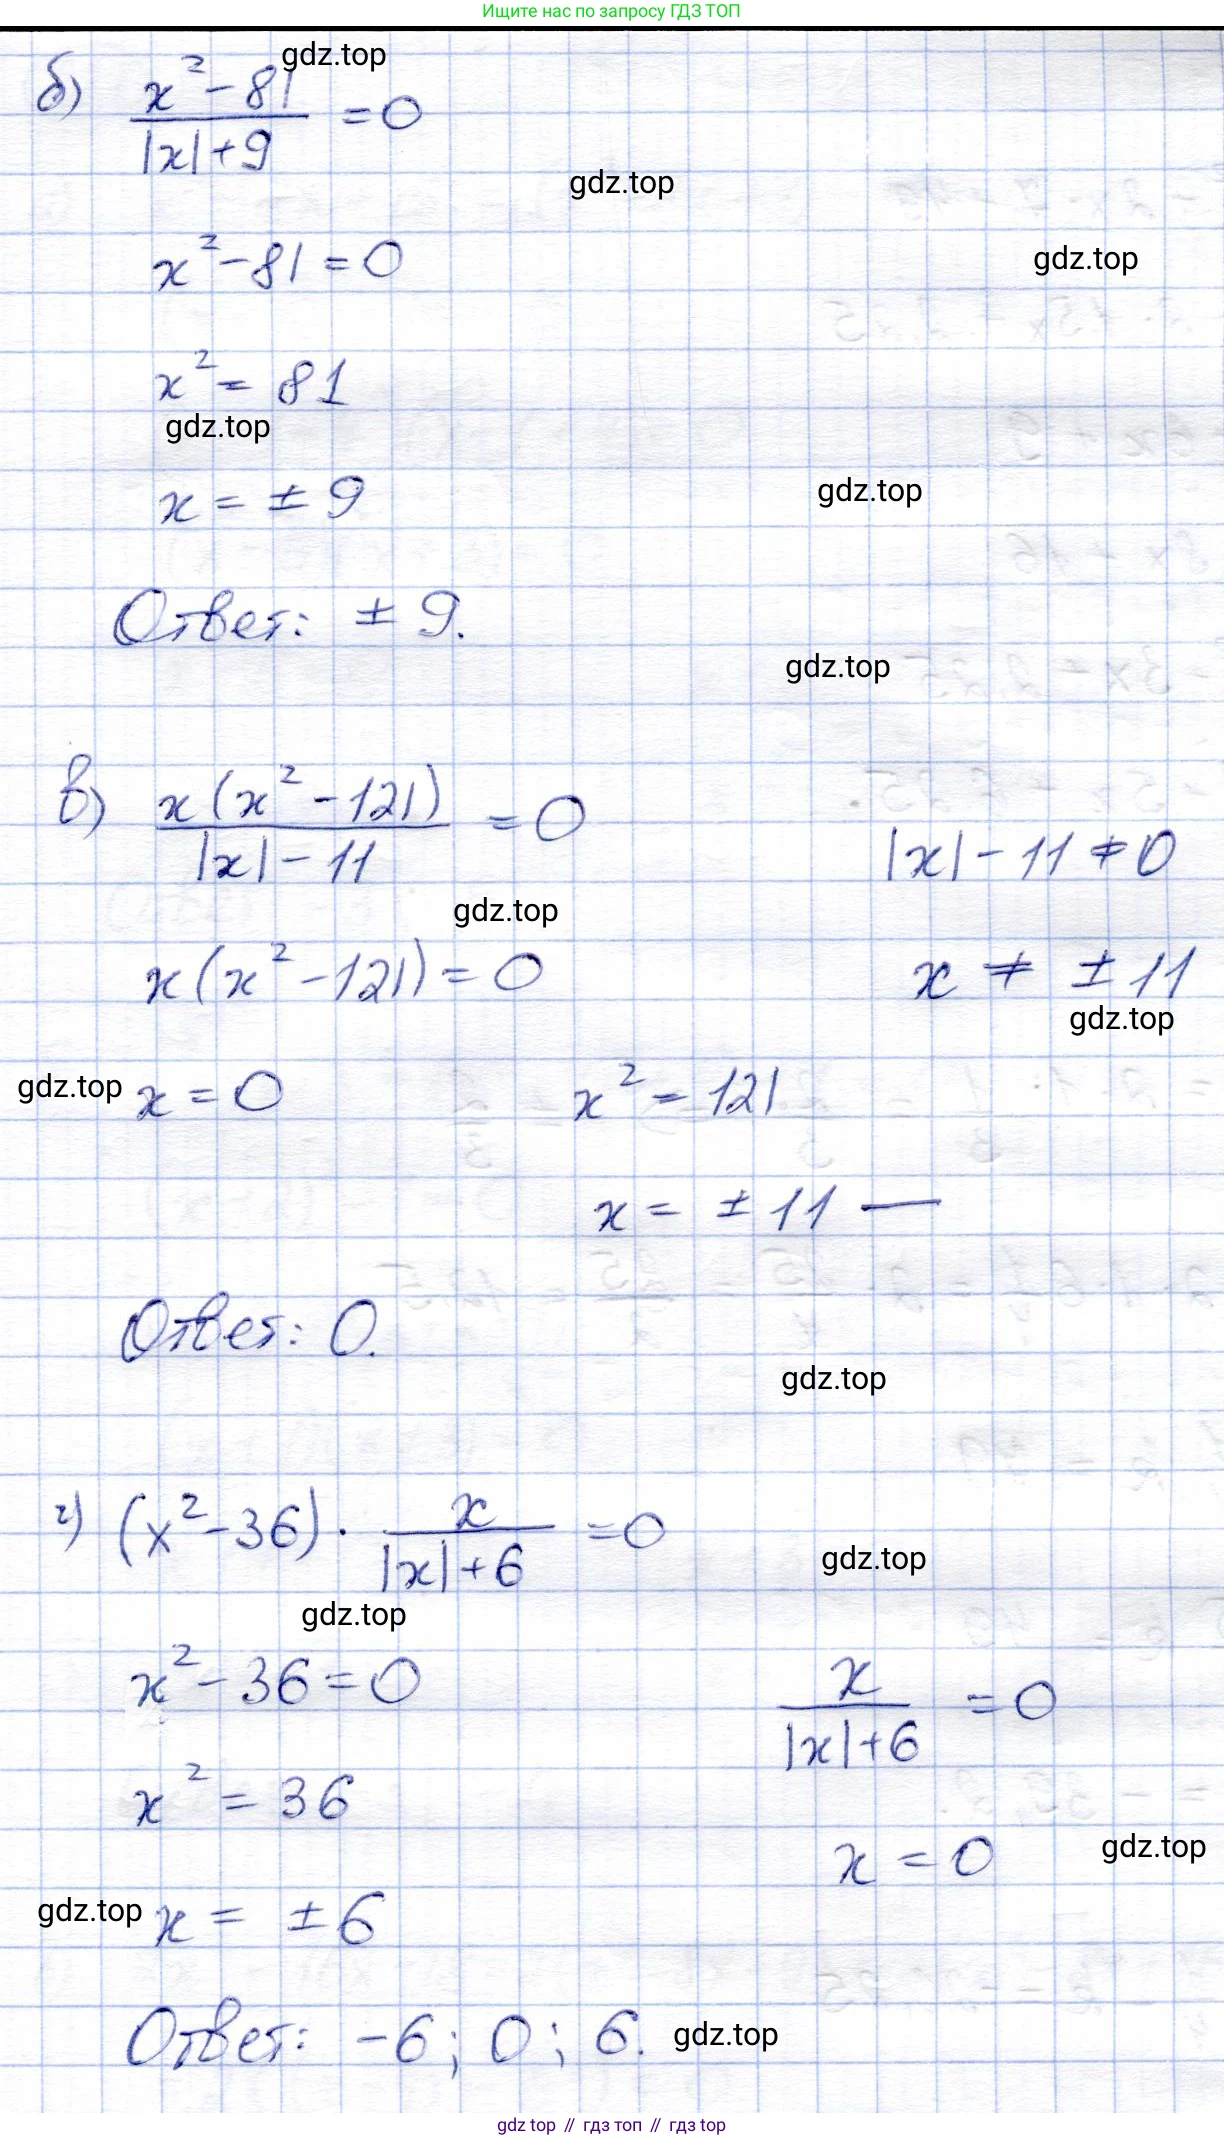 Ищите нас по запросу ГДЗ ТОП
gdz.top
б) (x² - 81)/(|x| + 9) = 0
gdz.top
x² - 81 = 0
gdz.top
x² = 81
gdz.top
x = ± 9
gdz.top
Ответ: ± 9.
gdz.top
в) x(x² - 121)/(|x| - 11) = 0
|x| - 11 ≠ 0
gdz.top
x(x² - 121) = 0
x ≠ ± 11
gdz.top
gdz.top
x = 0
x² = 121
x = ± 11 —
Ответ: 0.
gdz.top
г) (x² - 36) · x/(|x| + 6) = 0
gdz.top
gdz.top
x² - 36 = 0
x/(|x| + 6) = 0
x² = 36
x = 0
gdz.top
gdz.top
x = ± 6
Ответ: -6; 0; 6.
gdz.top
gdz top // гдз топ // гдз top